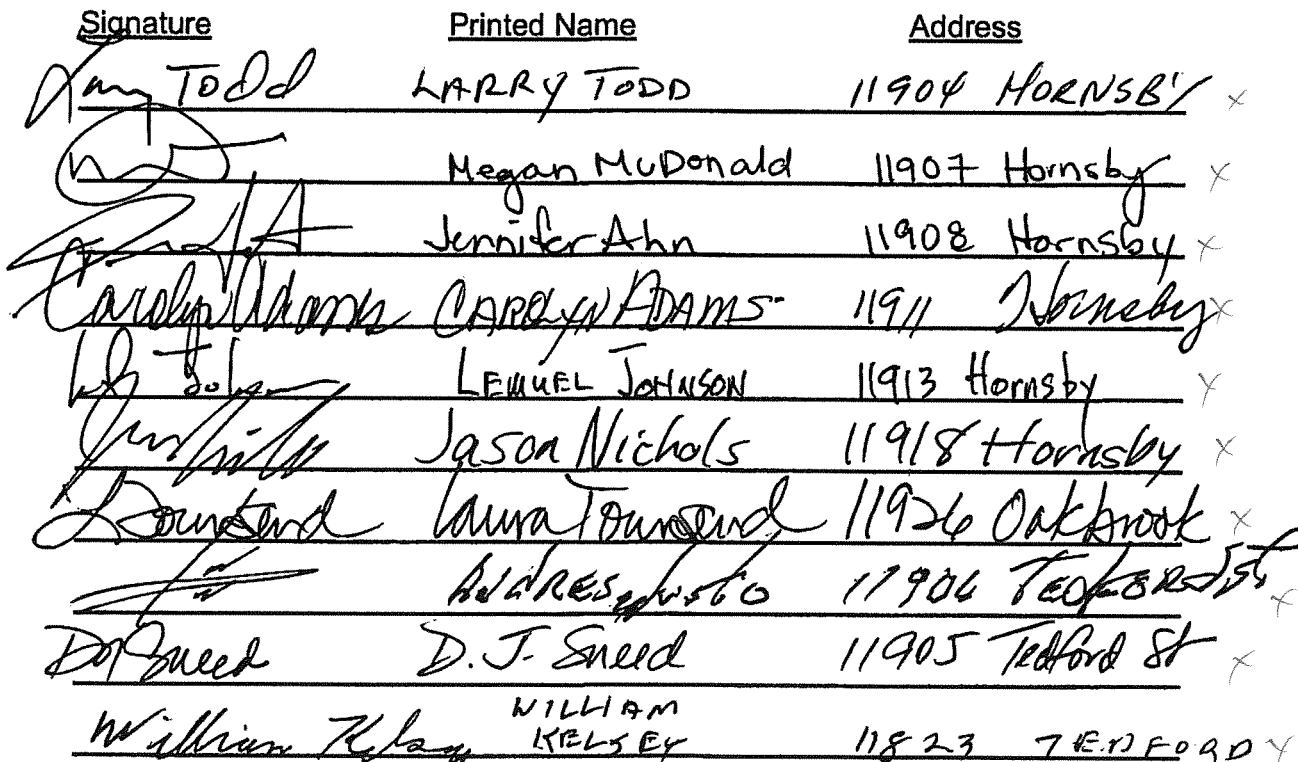 Signature Printed Name Address
Larry Todd LARRY TODD 11904 HORNSBY x
Megan McDonald 11907 Hornsby x
Jennifer Ahn 11908 Hornsby x
Carolyn Adams CAROLYN ADAMS 11911 Hornsby x
LEMUEL JOHNSON 11913 Hornsby x
Jason Nichols 11918 Hornsby x
LTownsend Laura Townsend 11926 Oakbrook x
ANDRES 11906 TEDFORD ST x
DJ Sneed D.J. Sneed 11905 Tedford St x
William Kelsey WILLIAM KELSEY 11823 TEDFORD x